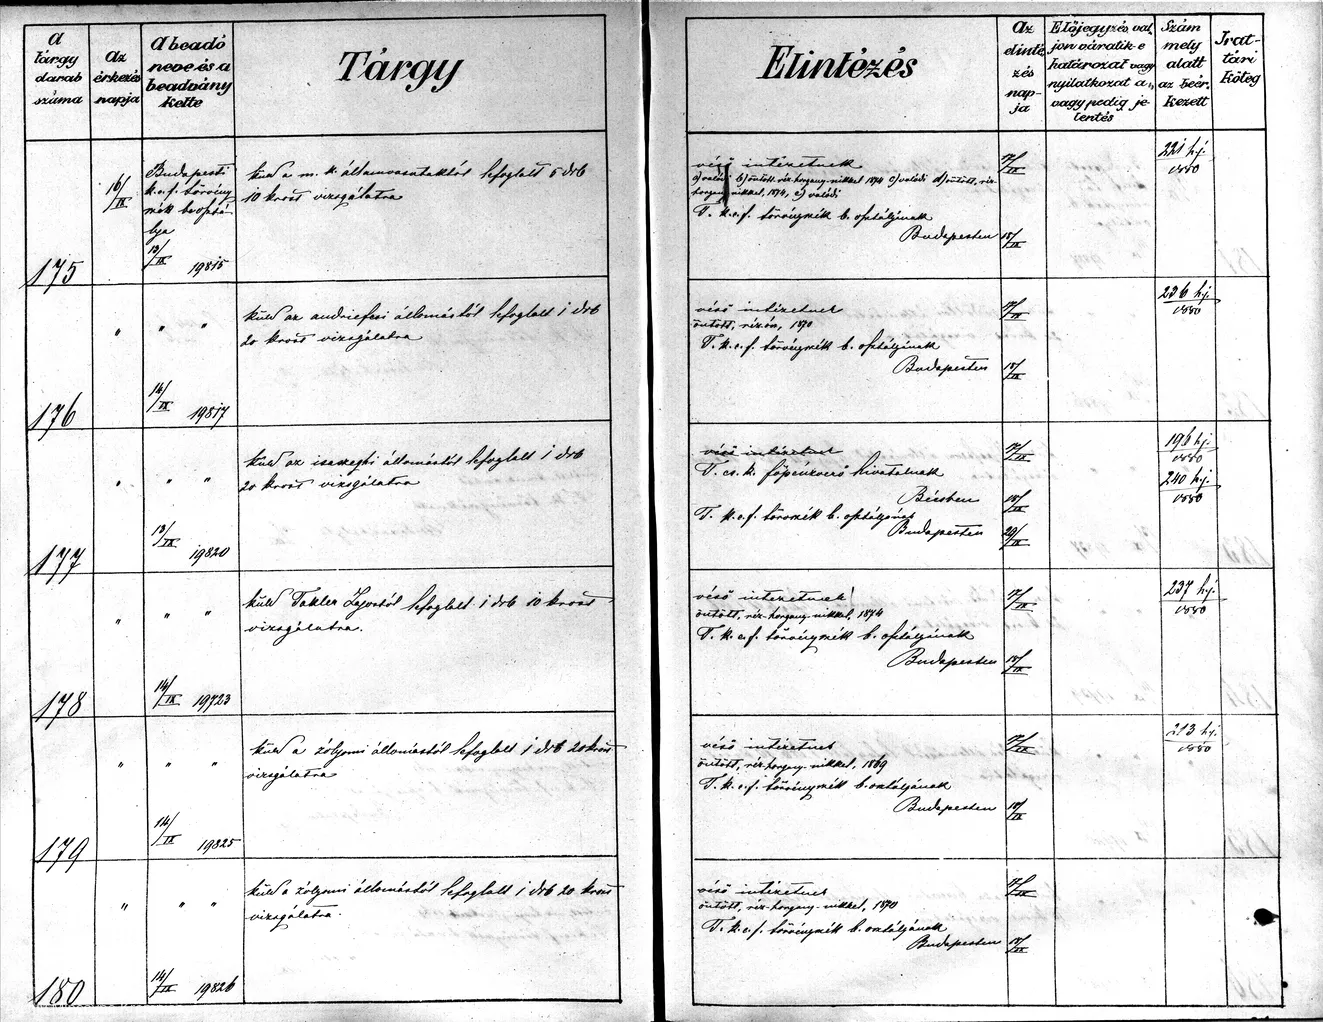 A tárgy darab száma
Az érkezés napja
A beadó neve és a beadvány kelte
Tárgy
Elintézés
Az elintézés napja
Előjegyzés, valjon váratik-e határozat vagy nyilatkozat a, vagy pedig jelentés
Szám mely alatt az beérkezett
Irattári köteg
175
16/IX
Budapesti
k. e. f. törvény
szék b. osztá
lya
13/IX 19815
küld a m. k. államvasutaktól lefoglalt 5 drb
10 krost vizsgálatra
véső intézetnek
a) valódi b) öntött réz-horgany-nikkel 1874 c) valódi d) öntött, réz-
horgany-nikkel, 1874, e) valódi
T. k. e. f. törvényszék b. osztályának
Budapesten
17/IX
18/IX
221 hj.
1880
176
" " "
14/IX 19817
küld az andriefcsi állomástól lefoglalt 1 drb
20 krost vizsgálatra
véső intézetnek
öntött, réz-ón, 1870
T. k. e. f. törvényszék b. osztályának
Budapesten
17/IX
18/IX
236 hj.
1880
177
" " "
13/IX 19820
küld az isaszeghi állomástól lefoglalt 1 drb
20 krost vizsgálatra
véső intézetnek
T. cs. k. főpénzverő hivatalnak
Bécsben
T. k. e. f. törvszék b. osztályának
Budapesten
17/IX
18/IX
29/IX
196 hj.
1880
240 hj.
1880
178
" " "
14/IX 19723
küld Takler Lajostól lefoglalt 1 drb 10 krost
vizsgálatra.
véső intézetnek
öntött, réz-horgany-nikkel, 1874
T. k. e. f. törvényszék b. osztályának
Budapesten
17/IX
18/IX
237 hj.
1880
179
" " "
14/IX 19825
küld a zólyomi állomástól lefoglalt 1 drb 20 krost
vizsgálatra
véső intézetnek
öntött, réz-horgany-nikkel, 1869
T. k. e. f. törvényszék b. osztályának
Budapesten
17/IX
18/IX
213 hj.
1880
180
" " "
14/IX 19826
küld a zólyomi állomástól lefoglalt 1 drb 20 krost
vizsgálatra.
véső intézetnek
öntött, réz-horgany-nikkel, 1870
T. k. e. f. törvényszék b. osztályának
Budapesten
17/IX
18/IX